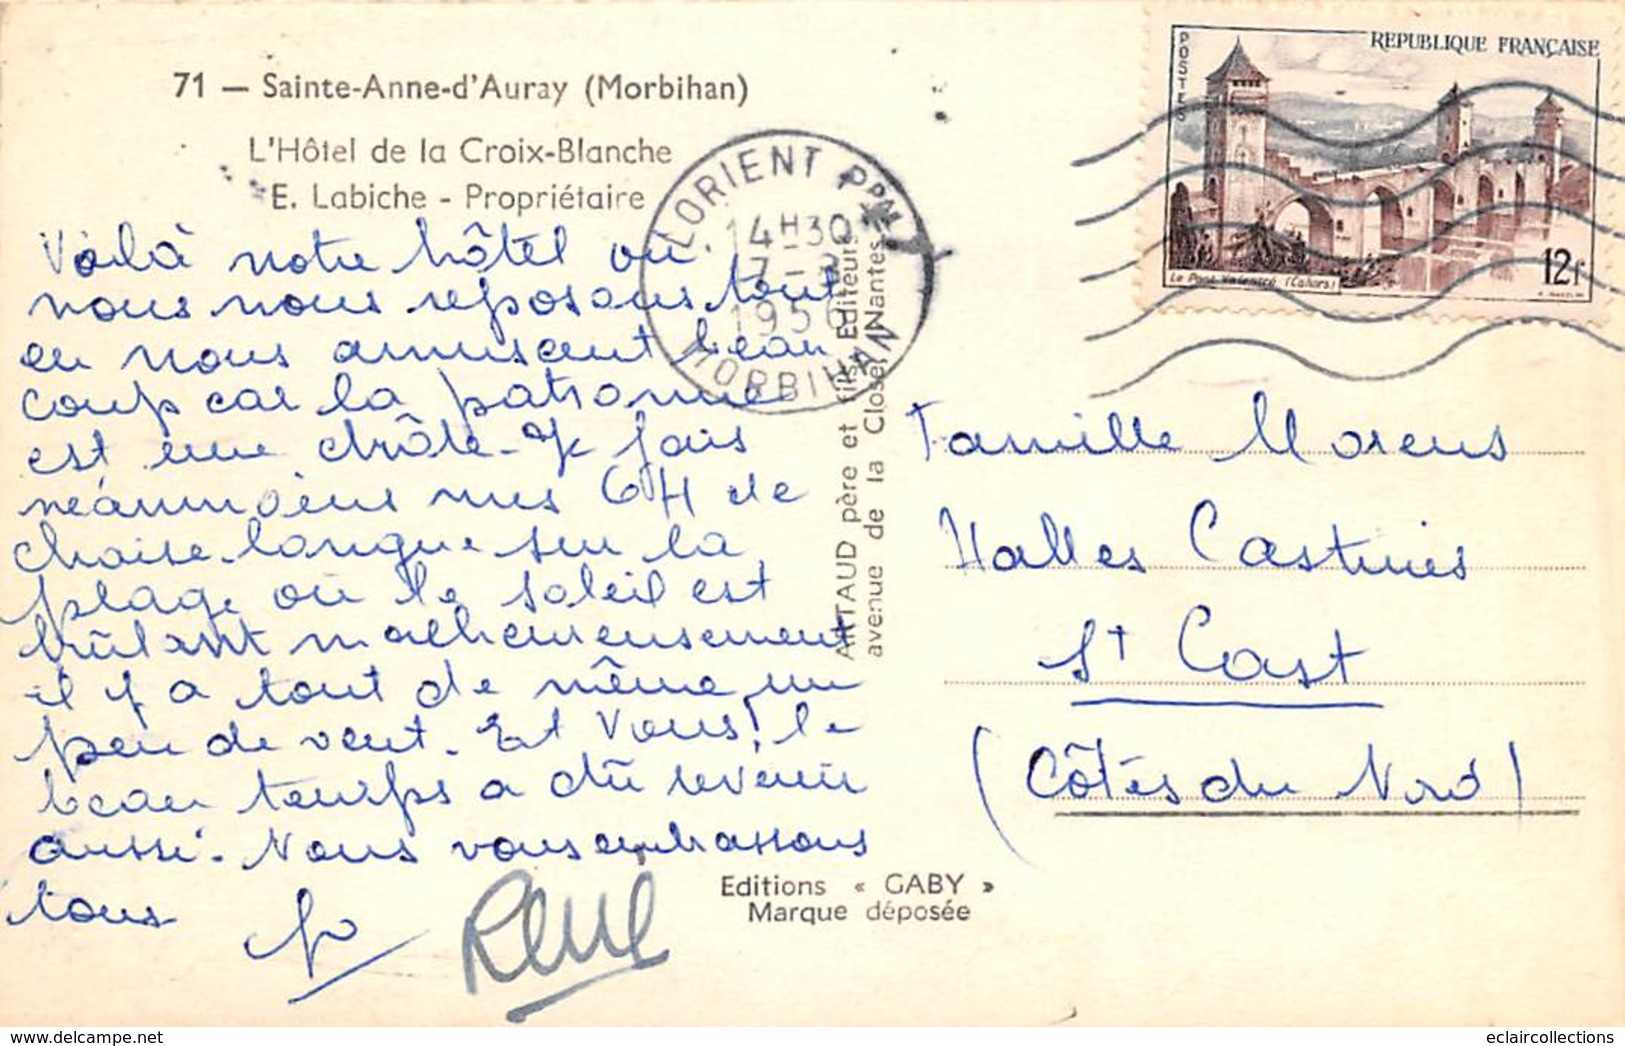 71 — Sainte-Anne-d'Auray (Morbihan)
L'Hôtel de la Croix-Blanche
E. Labiche - Propriétaire
Voilà notre hôtel où
nous nous reposons tout
en nous amusant beau
coup car la patronne
est une drôle. Je fais
néanmoins mes 6H de
chaise-longue sur la
plage où le soleil est
brûlant malheureusement
il y a tout de même un
peu de vent. Et Vous! le
beau temps a dû revenir
aussi. Nous vous embrassons
tous
René
LORIENT PPAL
14H30
7-
195
MORBIHAN
ARTAUD père et fils Editeurs
avenue de la Close, Nantes
Editions « GABY »
Marque déposée
POSTES
REPUBLIQUE FRANÇAISE
Le Pont Valentré (Cahors)
12f
Famille
Halles
St Cast
(Côtes du Nord)
www.delcampe.net
eclaircollections